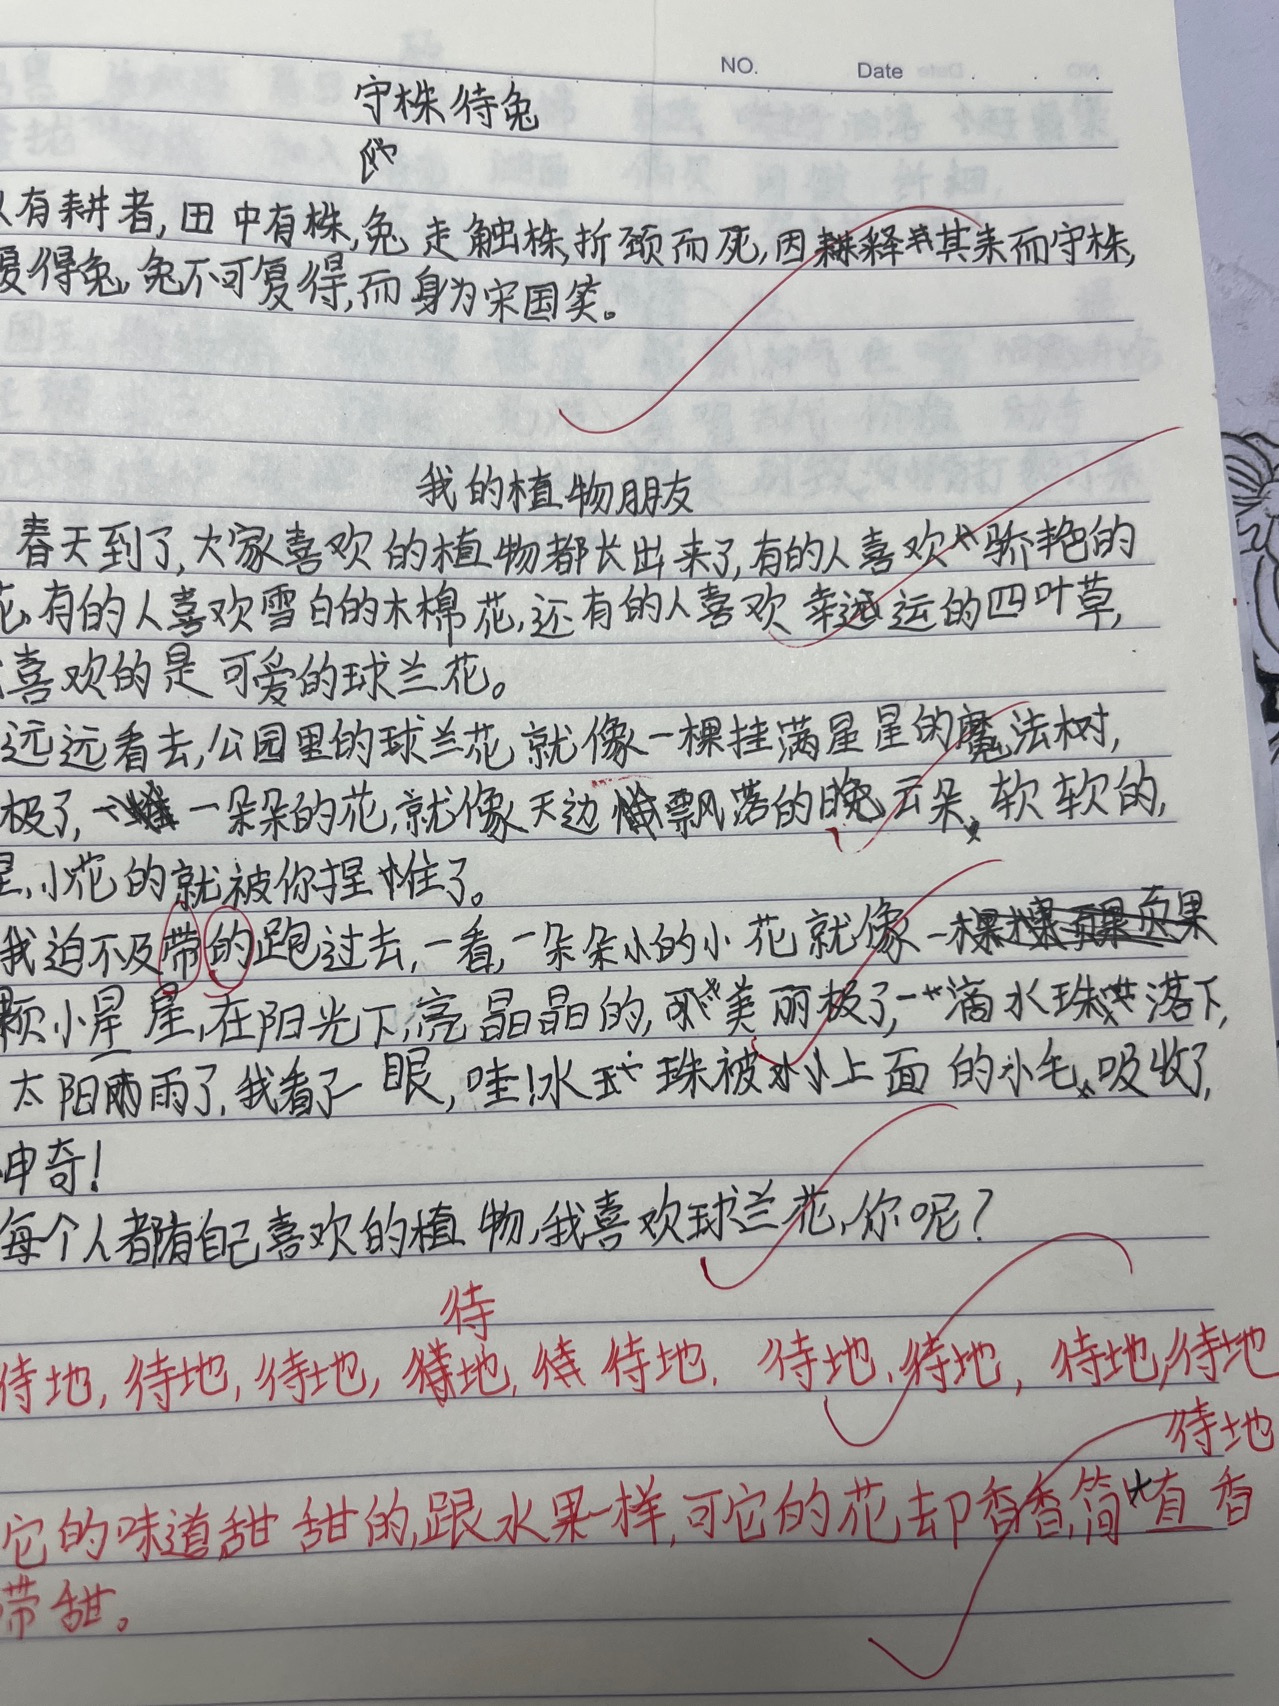 NO. Date
守株待兔
有耕者,田中有株,兔走触株,折颈而死,因释其耒而守株,
复得兔,兔不可复得,而身为宋国笑。
我的植物朋友
春天到了,大家喜欢的植物都长出来了,有的人喜欢骄艳的
花,有的人喜欢雪白的木棉花,还有的人喜欢幸运的四叶草,
喜欢的是可爱的球兰花。
远远看去,公园里的球兰花,就像一棵挂满星星的魔法树,
极了,一朵朵的花,就像天边飘落的晚云朵,软软的,
小花的就被你捏住了。
我迫不及带的跑过去,一看,一朵朵小的小花就像一
颗小星星,在阳光下,亮晶晶的,美丽极了,一滴水珠落下,
太阳雨了,我看了一眼,哇!水珠被小上面的小毛吸收了,
神奇!
每个人都有自己喜欢的植物,我喜欢球兰花,你呢?
待
待地,待地,待地,地,待地,待地,待地,待地,待地
待地
它的味道甜甜的,跟水果一样,可它的花却香香,简直香
带甜。